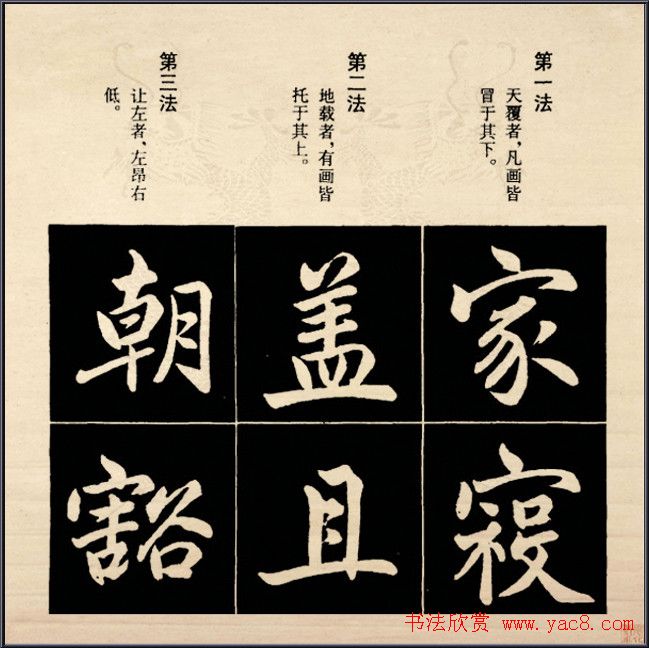 第一法
天覆者，凡画皆
冒于其下。
第二法
地载者，有画皆
托于其上。
第三法
让左者、左昂右
低。
家
寝
盖
且
朝
豁
书法欣赏 www.yac8.com